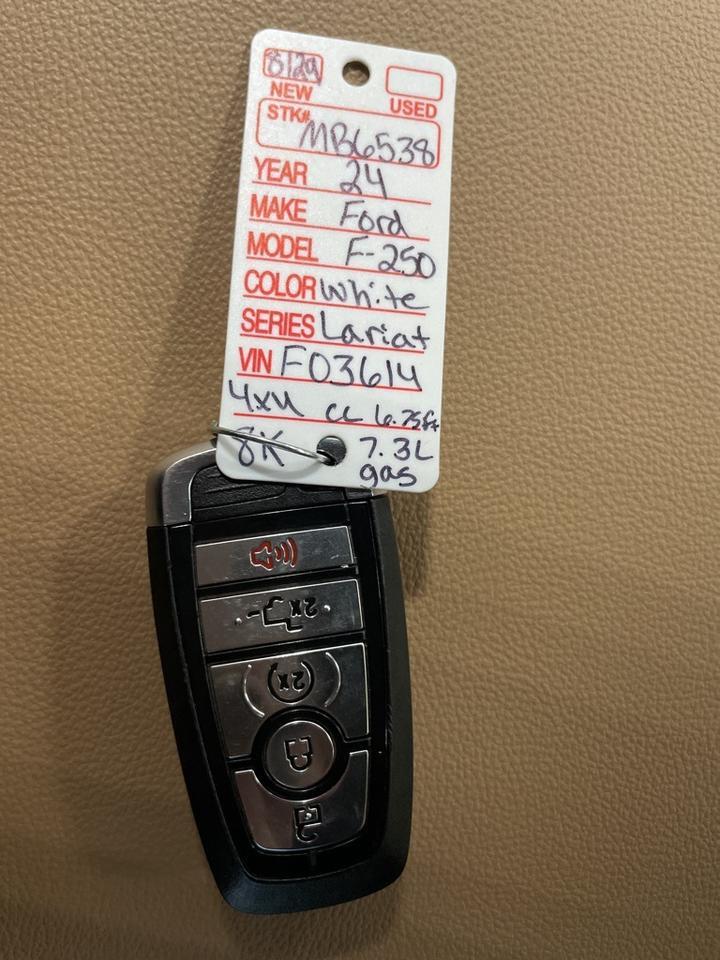 8129
NEW
USED
STK# MB6538
YEAR 24
MAKE Ford
MODEL F-250
COLOR White
SERIES Lariat
VIN F03614
4x4 CC 6.75ft
8K 7.3L
gas
2x
2x